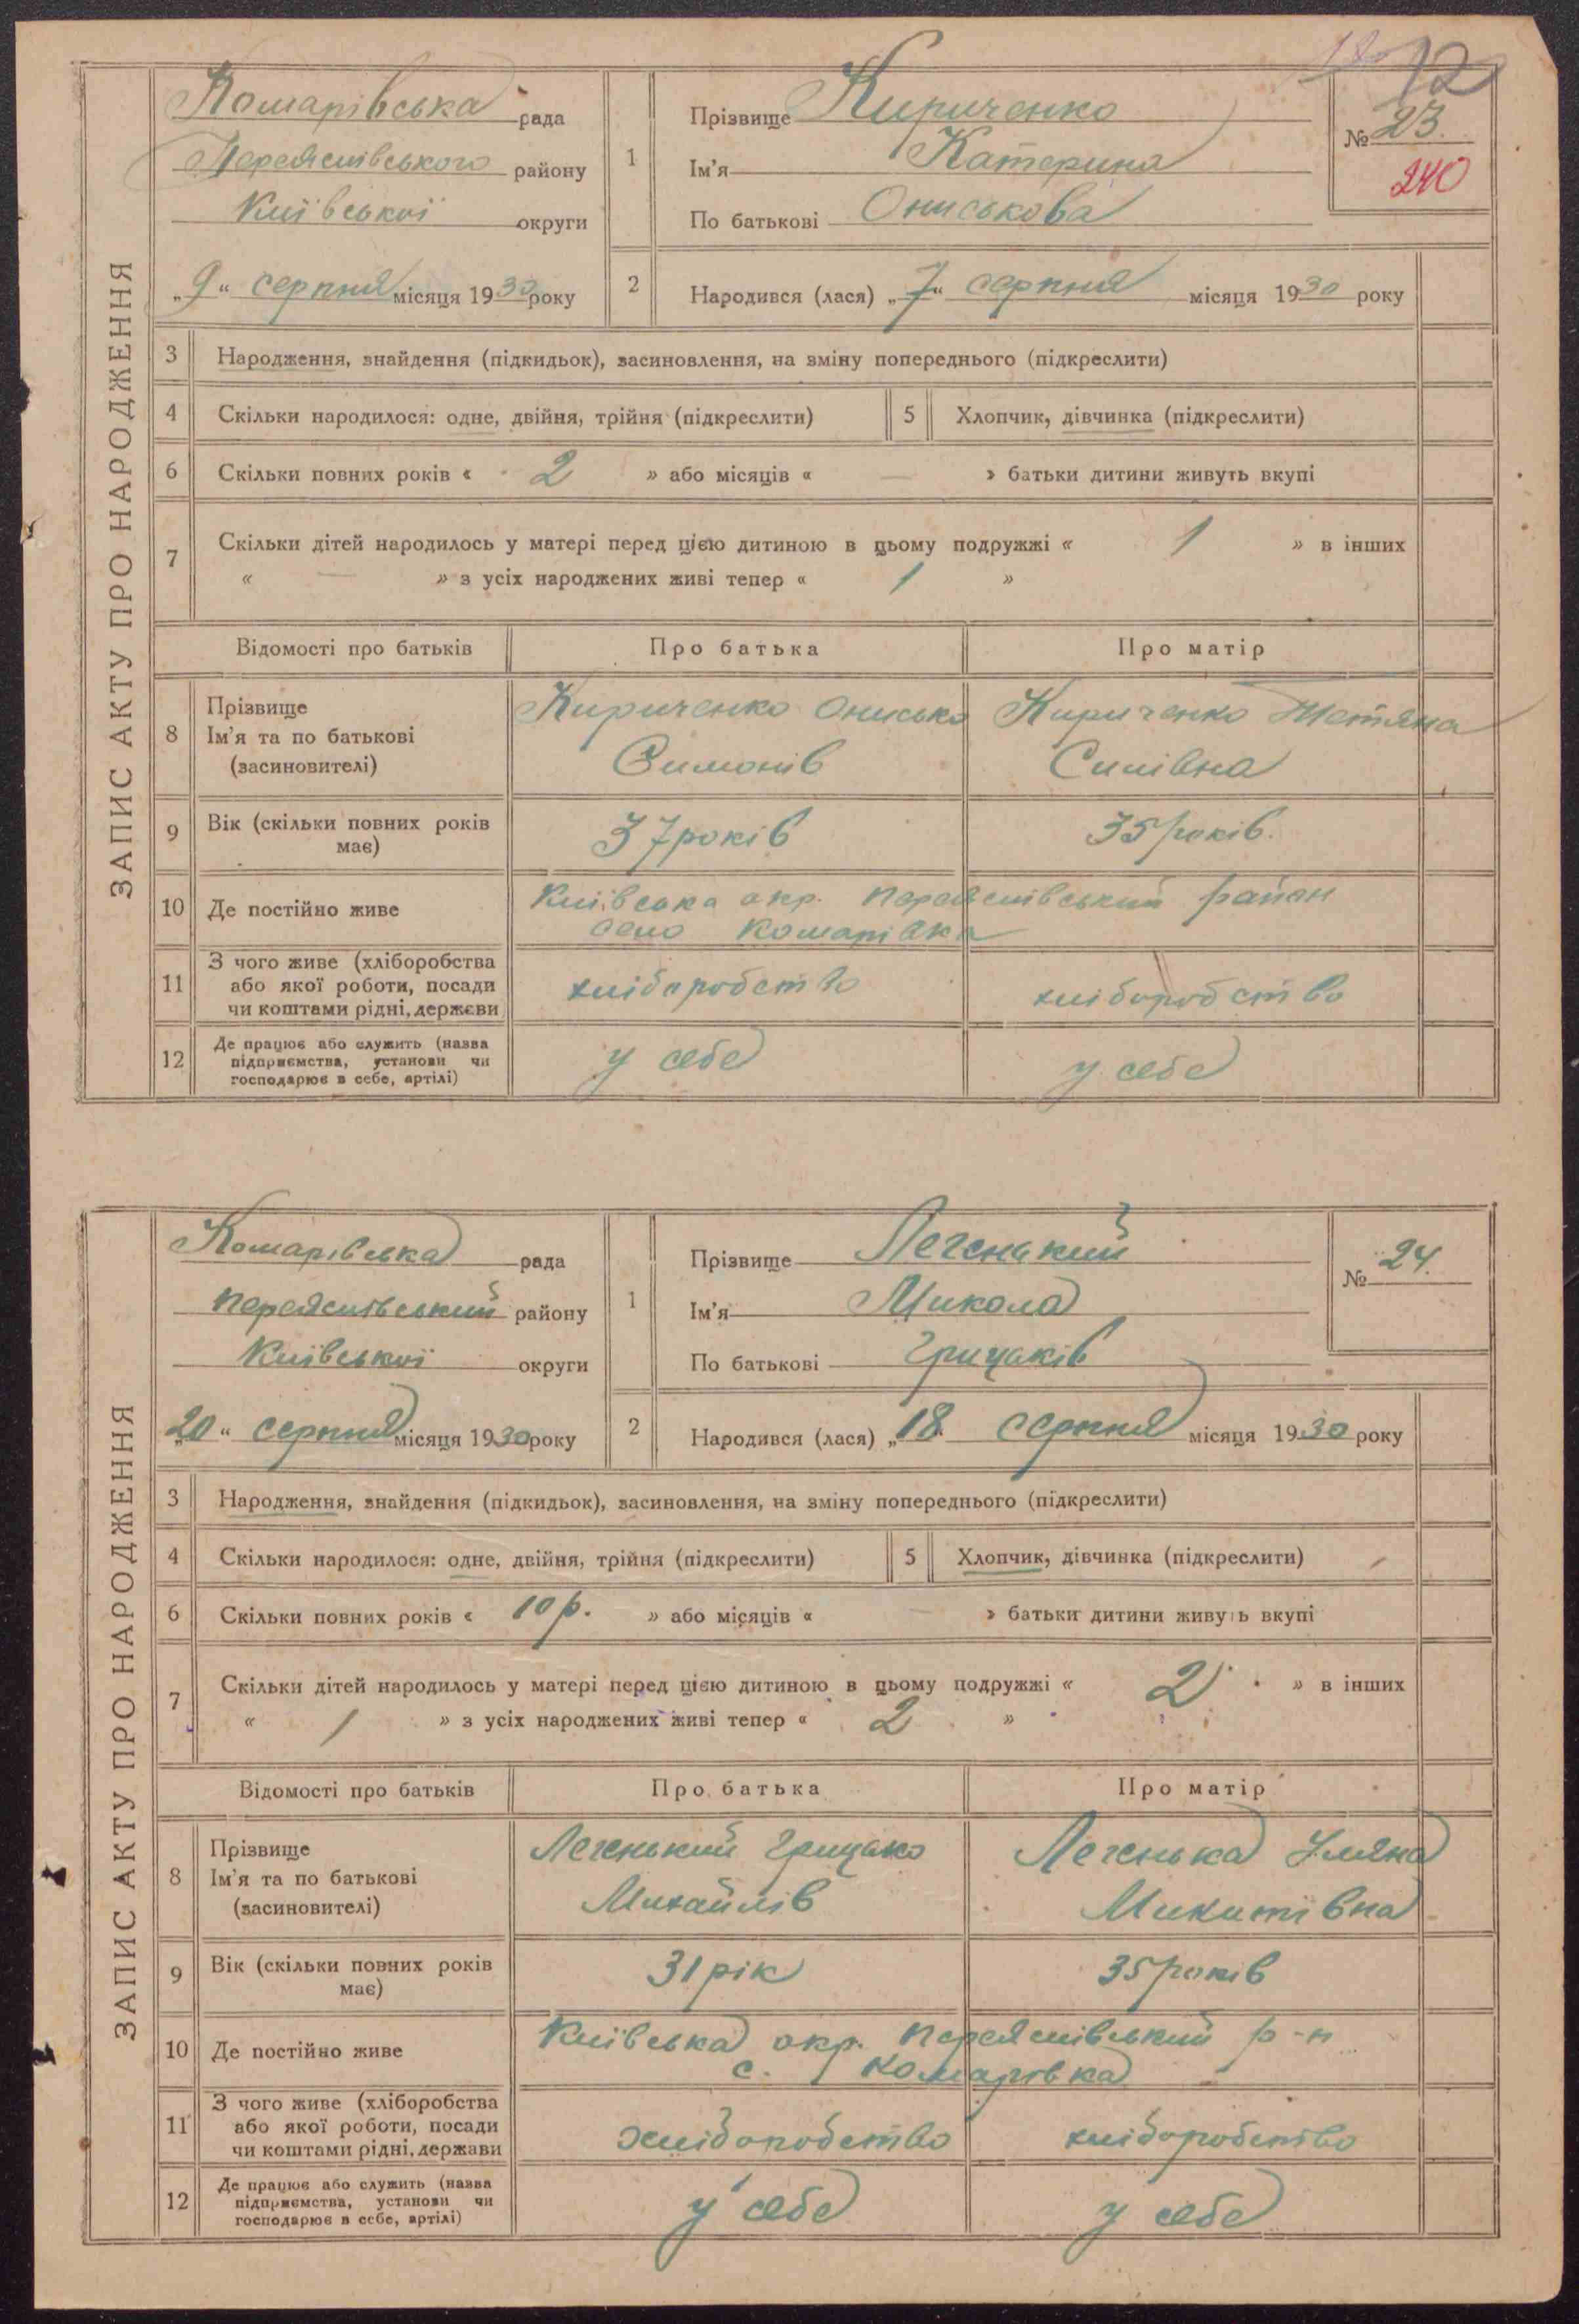 12
ЗАПИС АКТУ ПРО НАРОДЖЕННЯ
Комарівська рада
Переяслівського району
Київської округи
„9“ серпня місяця 1930 року
1 Прізвище Кириченко
Ім'я Катерина
По батькові Ониськова
№ 23.
240
2 Народився (лася) „7“ серпня місяця 1930 року
3 Народження, знайдення (підкидьок), засиновлення, на зміну попереднього (підкреслити)
4 Скільки народилося: одне, двійня, трійня (підкреслити) 5 Хлопчик, дівчинка (підкреслити)
6 Скільки повних років « 2 » або місяців « — » батьки дитини живуть вкупі
7 Скільки дітей народилось у матері перед цією дитиною в цьому подружжі « 1 » в інших
« — » з усіх народжених живі тепер « 1 »
Відомості про батьків Про батька Про матір
8 Прізвище Ім'я та по батькові (засиновителі)
Кириченко Онисько Симонів
Кириченко Тетяна Силівна
9 Вік (скільки повних років має) 37 років 35 років.
10 Де постійно живе Київська окр. Переяслівський район
село Комарівка
11 З чого живе (хліборобства або якої роботи, посади чи коштами рідні, держави хліборобство хліборобство
12 Де працює або служить (назва підприємства, установи чи господарює в себе, артілі) у себе у себе
ЗАПИС АКТУ ПРО НАРОДЖЕННЯ
Комарівська рада
Переяслівський району
Київської округи
„20“ серпня місяця 1930 року
1 Прізвище Легенький
Ім'я Микола
По батькові Грицьків
№ 24.
2 Народився (лася) „18. серпня місяця 1930 року
3 Народження, знайдення (підкидьок), засиновлення, на зміну попереднього (підкреслити)
4 Скільки народилося: одне, двійня, трійня (підкреслити) 5 Хлопчик, дівчинка (підкреслити)
6 Скільки повних років « 10 р. » або місяців « — » батьки дитини живуть вкупі
7 Скільки дітей народилось у матері перед цією дитиною в цьому подружжі « 2 » в інших
« 1 » з усіх народжених живі тепер « 2 »
Відомості про батьків Про батька Про матір
8 Прізвище Ім'я та по батькові (засиновителі)
Легенький Грицько Михайлів
Легенька Уляна Микитівна
9 Вік (скільки повних років має) 31 рік 35 років
10 Де постійно живе Київська окр. Переяслівський р-н
с. Комарівка
11 З чого живе (хліборобства або якої роботи, посади чи коштами рідні, держави хліборобство хліборобство
12 Де працює або служить (назва підприємства, установи чи господарює в себе, артілі) у себе у себе